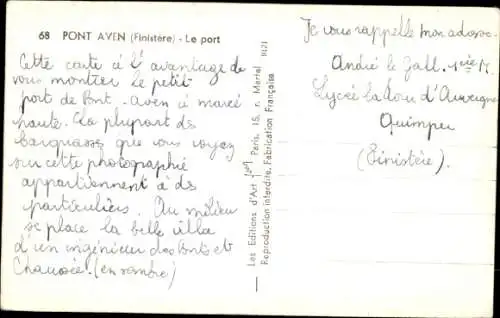 68 PONT AVEN (Finistère) - Le port
Cette carte a l'avantage de
vous montrer le petit
port de Pont. Aven à marée
haute. La plupart des
barquasses que vous voyez
sur cette photographie
appartiennent à des
particuliers. Au milieu
se place la belle villa
d'un ingénieur des Ponts et
Chaussée. (en rambre)
Les Editions d'Art Yvon, Paris, 15, r. Martel
Reproduction interdite. Fabrication Française
Je vous rappelle mon adresse
André le Gall. 1ère M.
Lycée la Tour d'Auvergne
Quimper
(Finistère).